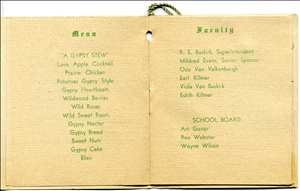 Menu
"A GYPSY STEW"
Love Apple Cocktail
Prairie Chicken
Potatoes Gypsy Style
Gypsy Heartbeats
Wildwood Berries
Wild Roses
Wild Sweet Roots
Gypsy Nectar
Gypsy Bread
Sweet Nuts
Gypsy Cake
Elixir
Faculty
R. E. Baskirk, Superintendent
Mildred Evans, Senior Sponsor
Osie Van Valkenburgh
Earl Kilmer
Viola Van Buskirk
Edith Kilmer
SCHOOL BOARD
Art Ganer
Reo Webster
Wayne Wilson